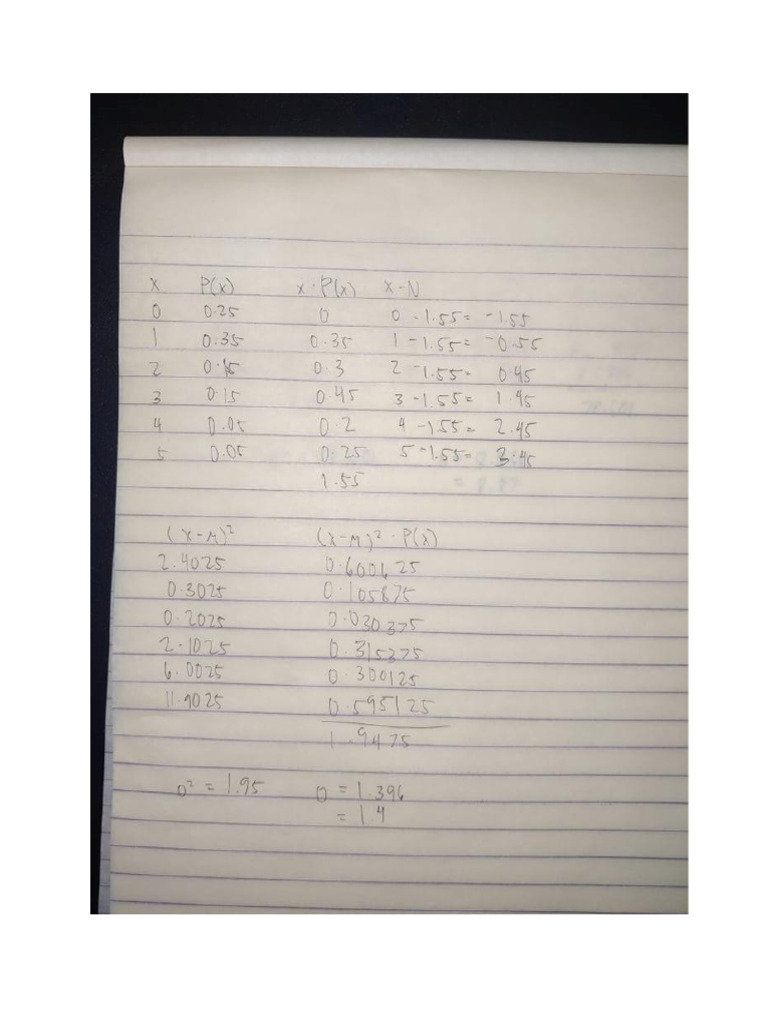 x P(x) x · P(x) x - N
0 0.25 0 0 - 1.55 = -1.55
1 0.35 0.35 1 - 1.55 = -0.55
2 0.15 0.3 2 - 1.55 = 0.45
3 0.15 0.45 3 - 1.55 = 1.45
4 0.05 0.2 4 - 1.55 = 2.45
5 0.05 0.25 5 - 1.55 = 3.45
1.55
(x-M)² (x-M)² · P(x)
2.4025 0.600625
0.3025 0.105875
0.2025 0.030375
2.1025 0.315375
6.0025 0.300125
11.9025 0.595125
1.9475
σ² = 1.95 σ = 1.396
= 1.4